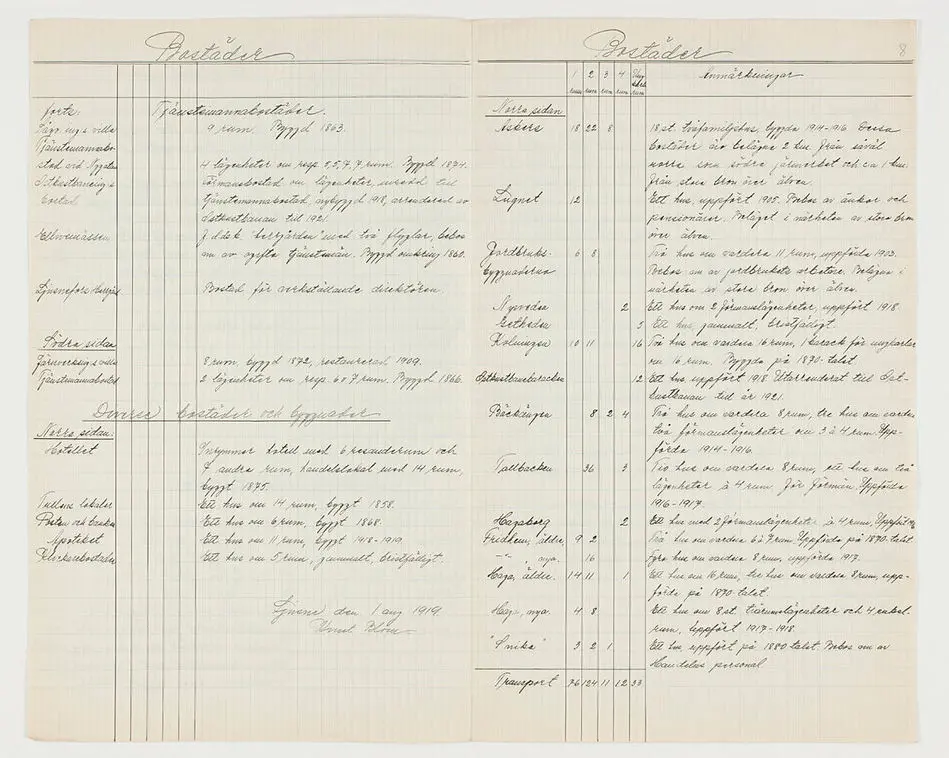 Bostäder
forts. Tjänstemannabostäder.
villa 9 rum. Byggd 1863.
Tjänstemannabo-
stad 4 lägenheter om resp. 5, 5, 7, 7 rum. Byggd 1874.
Förmansbostad om lägenheter, inredd till
bostad tjänstemannabostad, nybyggd 1918, arrenderad av
Ostkustbanan till 1921.
J. d. dsk. "herrgården" med två flyglar, bebos
nu av ogifta tjänstemän. Byggd omkring 1860.
Ljusnefors Bostad för verkställande direktören.
Södra sidan
villa 8 rum, byggd 1872, restaurerad 1909.
Tjänstemannabostad 2 lägenheter om resp. 6 o 7 rum. Byggd 1866.
Diverse bostäder och byggnader
Norra sidan:
Hotellet Inrymmer hotell med 6 resanderum och
andra rum, handelslokal med 14 rum,
byggt 1875.
Tullens lokaler Ett hus om 14 rum, byggt 1858.
Posten och banken Ett hus om 6 rum, byggt 1868.
Apoteket Ett hus om 11 rum, byggt 1918-1919.
Klockarebostaden Ett hus om 5 rum, gammalt, bristfälligt.
Ljusne den 1 aug 1919
Blom
Bostäder 8
1 rum 2 rum 3 rum 4 rum rum Anmärkningar
Norra sidan
Askers 18 22 8 18 st. tvåfamiljshus, byggda 1914-1916. Dessa
bostäder äro belägna 2 km. från såväl
norra som södra järnverket och ca 1 km.
från stora bron över älven.
Lugnet 12 Ett hus, uppfört 1905. Bebos av änkor och
pensionärer. Beläget i närheten av stora bron
över älven.
Jordbruks- 6 8 Två hus om vardera 11 rum, uppförda 1903.
byggnaderna Bebos nu av jordbrukets arbetare. Belägna i
närheten av stora bron över älven.
2 Ett hus om 2 förmanslägenheter, uppfört 1918.
3 Ett hus, gammalt, bristfälligt.
Kolningen 10 11 16 Två hus om vardera 16 rum, 1 barack för ungkarlar
om 16 rum. Byggda på 1870-talet
Ostkustbanebaracken 12 Ett hus uppfört 1918 Utarrenderat till Ost-
kustbanan till år 1921.
Bäckängen 8 2 4 Två hus om vardera 8 rum, tre hus om vardera
två förmanslägenheter om 3 à 4 rum. Upp-
förda 1914-1916.
Tallbacken 36 3 Tio hus om vardera 8 rum, ett hus om två
lägenheter à 4 rum. För förmän. Uppförda
1916-1917.
Hagaborg 2 Ett hus med 2 förmanslägenheter à 4 rum,
Fridhem, äldre, 9 2 Två hus om vardera 6 à 7 rum. Uppförda på 1870-talet.
-"- nya. 16 Fyra hus om vardera 8 rum, uppförda 1917.
Haga, äldre. 14 11 1 Ett hus om 16 rum, tre hus om vardera 8 rum, upp-
förda på 1870-talet.
Haga, nya. 4 8 Ett hus om 8 st. tvårumslägenheter och 4 enkel-
rum, uppfört 1917-1918.
3 2 1 Ett hus, uppfört på 1880-talet. Bebos nu av
Handelns personal
Transport 76 124 11 12 33